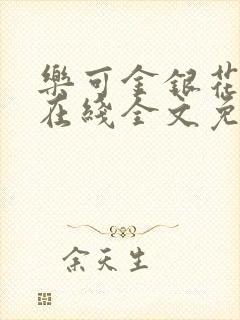 樂可金銀花
在綫全文免
余天生